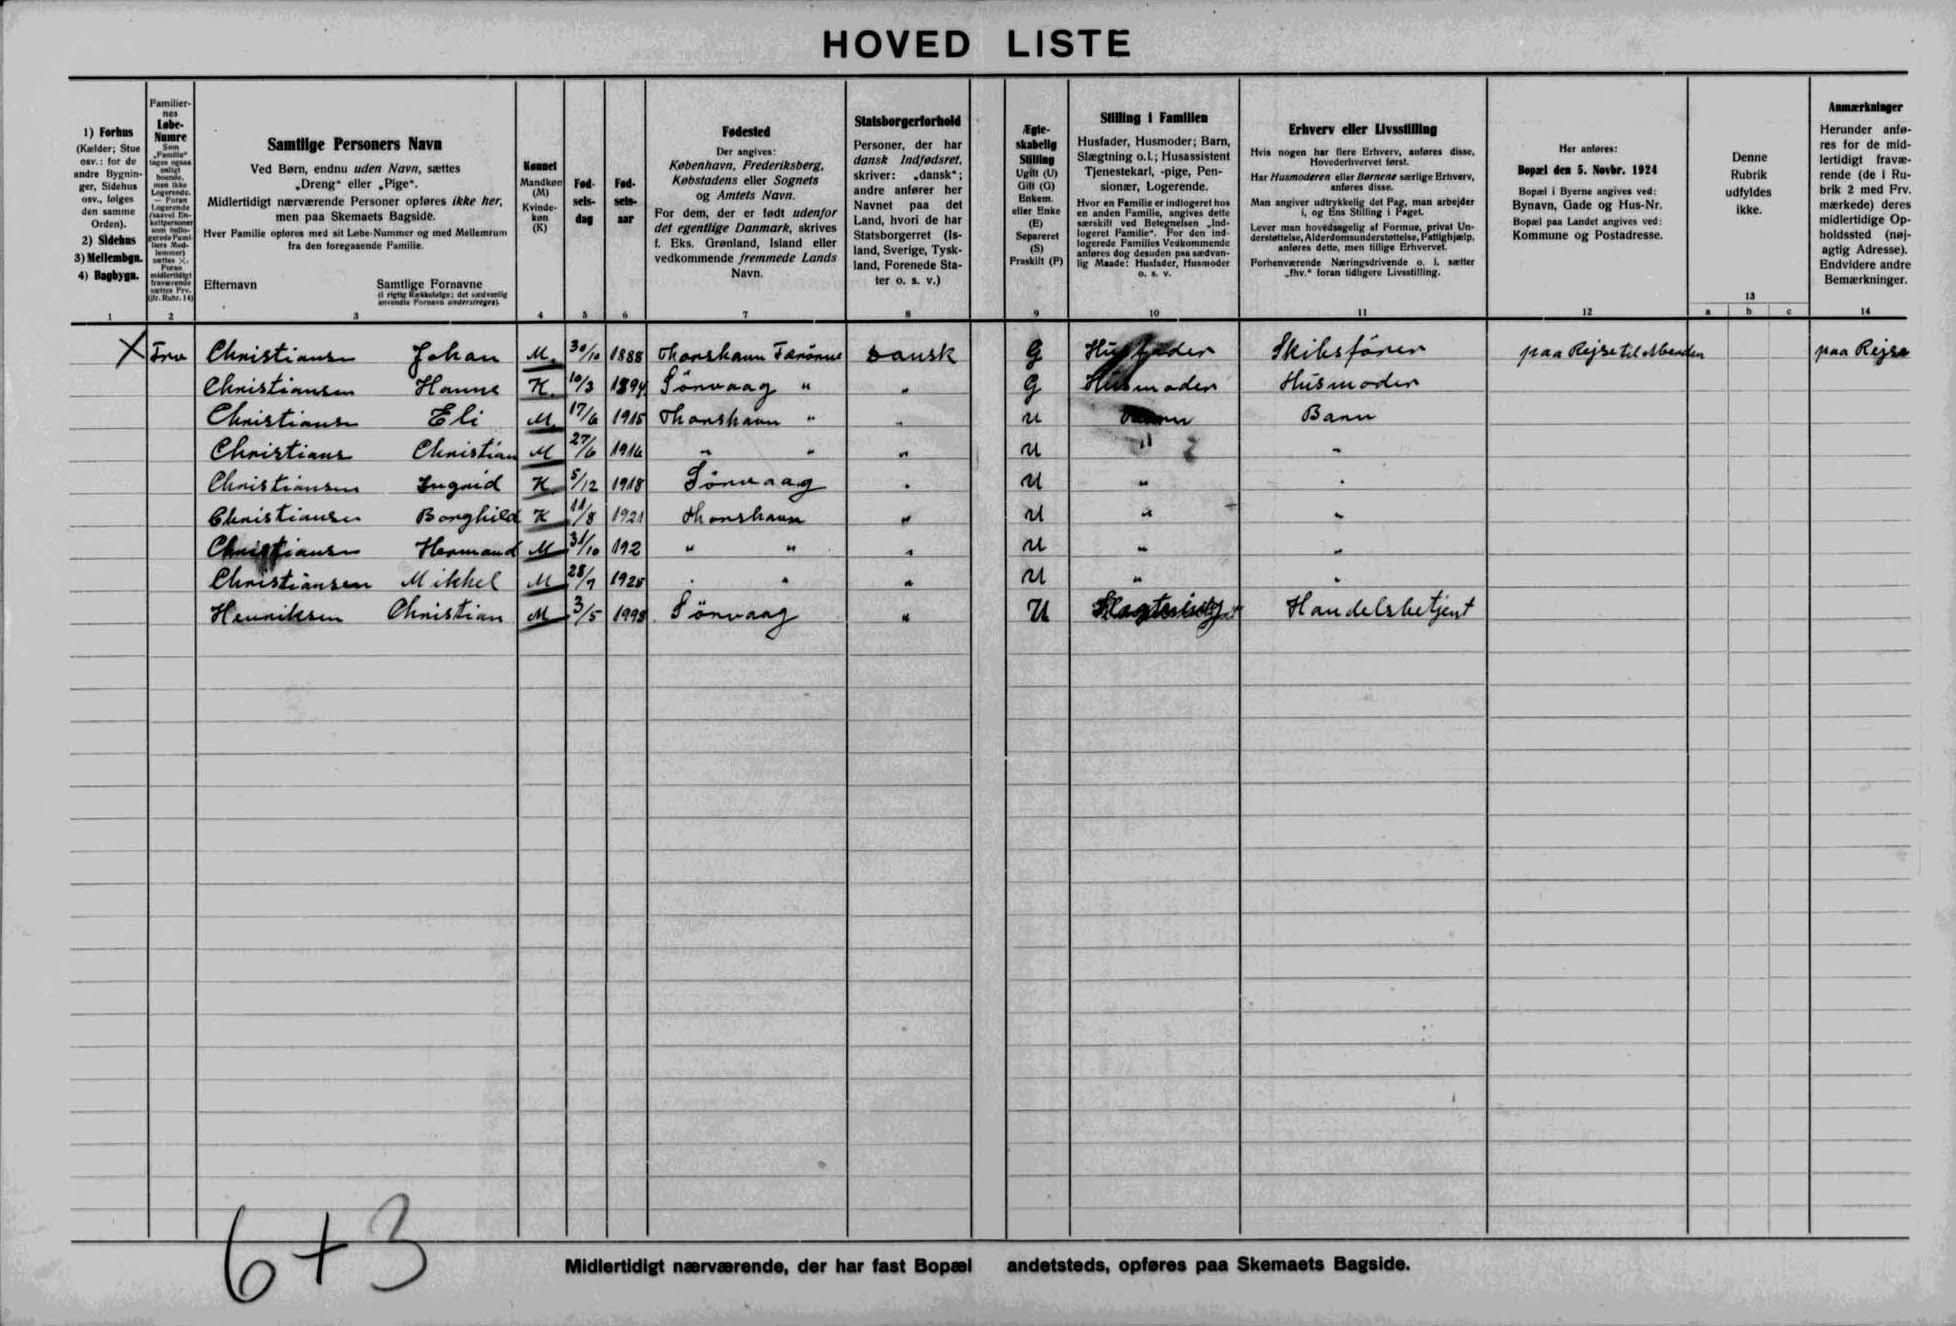 HOVED LISTE
1) Forhus
(Kælder; Stue
osv.: for de
andre Bygnin-
ger, Sidehus
osv., følges
den samme
Orden).
2) Sidehus
3) Mellembgn.
4) Bagbygn.
1
Familier-
nes
Løbe-
Numre
2
Samtlige Personers Navn
Ved Børn, endnu uden Navn, sættes
„Dreng“ eller „Pige“.
Midlertidigt nærværende Personer opføres ikke her,
men paa Skemaets Bagside.
Hver Familie opføres med sit Løbe-Nummer og med Mellemrum
fra den foregaaende Familie.
Efternavn Samtlige Fornavne
(i rigtig Rækkefølge; det sædvanlig
anvendte Fornavn understreges).
3
Kønnet
Mandkøn
(M)
Kvinde-
køn
(K)
4
Fød-
sels-
dag
5
Fød-
sels-
aar
6
Fødested
Der angives:
København, Frederiksberg,
Købstadens eller Sognets
og Amtets Navn.
For dem, der er født udenfor
det egentlige Danmark, skrives
f. Eks. Grønland, Island eller
vedkommende fremmede Lands
Navn.
7
Statsborgerforhold
Personer, der har
dansk Indfødsret,
skriver: „dansk“;
andre anfører her
Navnet paa det
Land, hvori de har
Statsborgerret (Is-
land, Sverige, Tysk-
land, Forenede Sta-
ter o. s. v.)
8
Ægte-
skabelig
Stilling
Ugift (U)
Gift (G)
Enkem.
eller Enke
(E)
Separeret
(S)
Fraskilt (F)
9
Stilling i Familien
Husfader, Husmoder; Barn,
Slægtning o.l.; Husassistent
Tjenestekarl, -pige, Pen-
sionær, Logerende.
Hvor en Familie er indlogeret hos
en anden Familie, angives dette
særskilt ved Betegnelsen „Ind-
logeret Familie“. For den ind-
logerede Families Vedkommende
anføres dog desuden paa sædvan-
lig Maade: Husfader, Husmoder
o. s. v.
10
Erhverv eller Livsstilling
Hvis nogen har flere Erhverv, anføres disse,
Hovederhvervet først.
Har Husmoderen eller Børnene særlige Erhverv,
anføres disse.
Man angiver udtrykkelig det Fag, man arbejder
i, og Ens Stilling i Faget.
Lever man hovedsagelig af Formue, privat Un-
derstøttelse, Alderdomsunderstøttelse, Fattighjælp,
anføres dette, men tillige Erhvervet.
Forhenværende Næringsdrivende o. l. sætter
„fhv.“ foran tidligere Livsstilling.
11
Her anføres:
Bopæl den 5. Novbr. 1924
Bopæl i Byerne angives ved:
Bynavn, Gade og Hus-Nr.
Bopæl paa Landet angives ved:
Kommune og Postadresse.
12
Denne
Rubrik
udfyldes
ikke.
13
a b c
Anmærkninger
Herunder anfø-
res for de mid-
lertidigt fravæ-
rende (de i Ru-
brik 2 med Frv.
mærkede) deres
midlertidige Op-
holdssted (nøj-
agtig Adresse).
Endvidere andre
Bemærkninger.
14
X Frv Christiansen Johan M. 30/10 1888 Thorshavn Færöerne Dansk G Husfader Skibsförer paa Rejse paa Rejse
Christiansen Hanne K. 10/3 1894 Sörvaag " " G Husmoder Husmoder
Christiansen Eli M 17/6 1915 Thorshavn " " U Barn
Christians Christian M 27/6 1916 " " " U " "
Christiansen Ingrid K 5/12 1918 Sörvaag " U " "
Christiansen Borghild K 11/8 1921 Thorshavn " U " "
Christiansen Hermand M 31/10 192 " " " U " "
Christiansen Mikkel M 28/7 1925 " " " U " "
Henriksen Christian M 3/5 1998 Sörvaag " U Handelsbetjent
6+3
Midlertidigt nærværende, der har fast Bopæl andetsteds, opføres paa Skemaets Bagside.